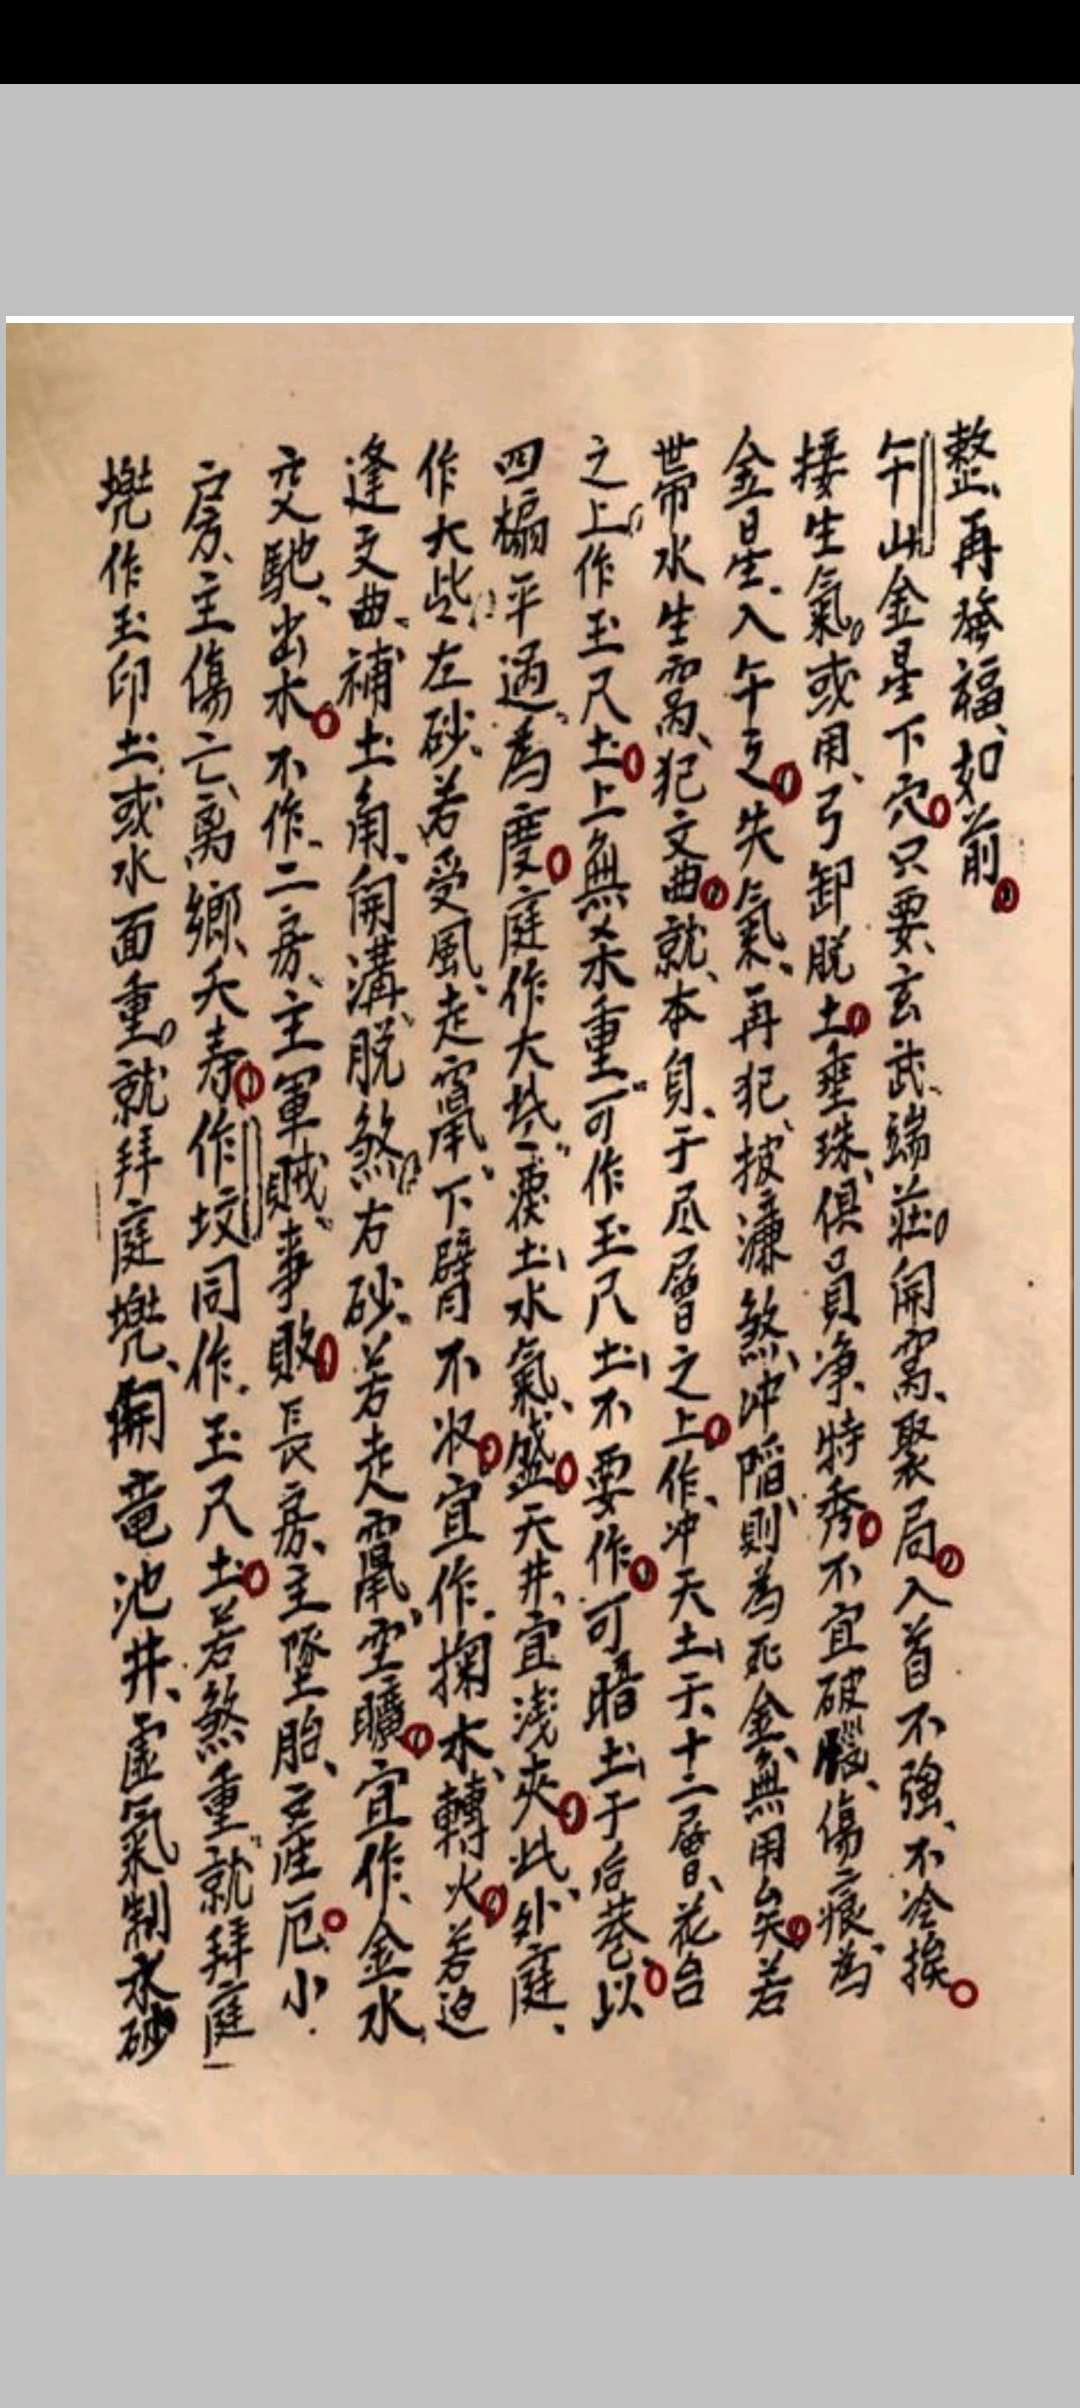 整、再發福、如前。
午山金星下穴。只要、玄武、端莊。開窩、聚局。入首不強、不冷挨。
接生氣。或用、弓卸脫土。垂珠、俱員净、特秀。不宜破腦、傷痕、為
金星、入午之。失氣、再犯、披濂煞、冲陷、則為死金、無用矣。若
帶水生窩、犯文曲。就、本身、于尽層之上。作、冲天土于、十二層、花台
之上。作玉尺土。上無文木重、可作玉尺土、不要作。可暗土于后巷、以
四榻平過、為度。庭作大些、裡土水氣、盛。天井、宜淺夾。此、外庭、
作大些、左砂、若受風、走竄、下臂不收。宜作、掬水、轉火。若迫
逢文曲、補土角、開溝、脫煞。右砂、若走竄、空曠。宜作、金水、
交馳、出水。不作、二房、主軍賊、事敗。長房、主墜胎、產厄。小
房、主傷亡、离鄉、夭壽。作坟同作、玉尺土。若煞重、就拜庭
埦作玉印土、或水面重。就拜庭埦、開竜池井、虛氣制水砂